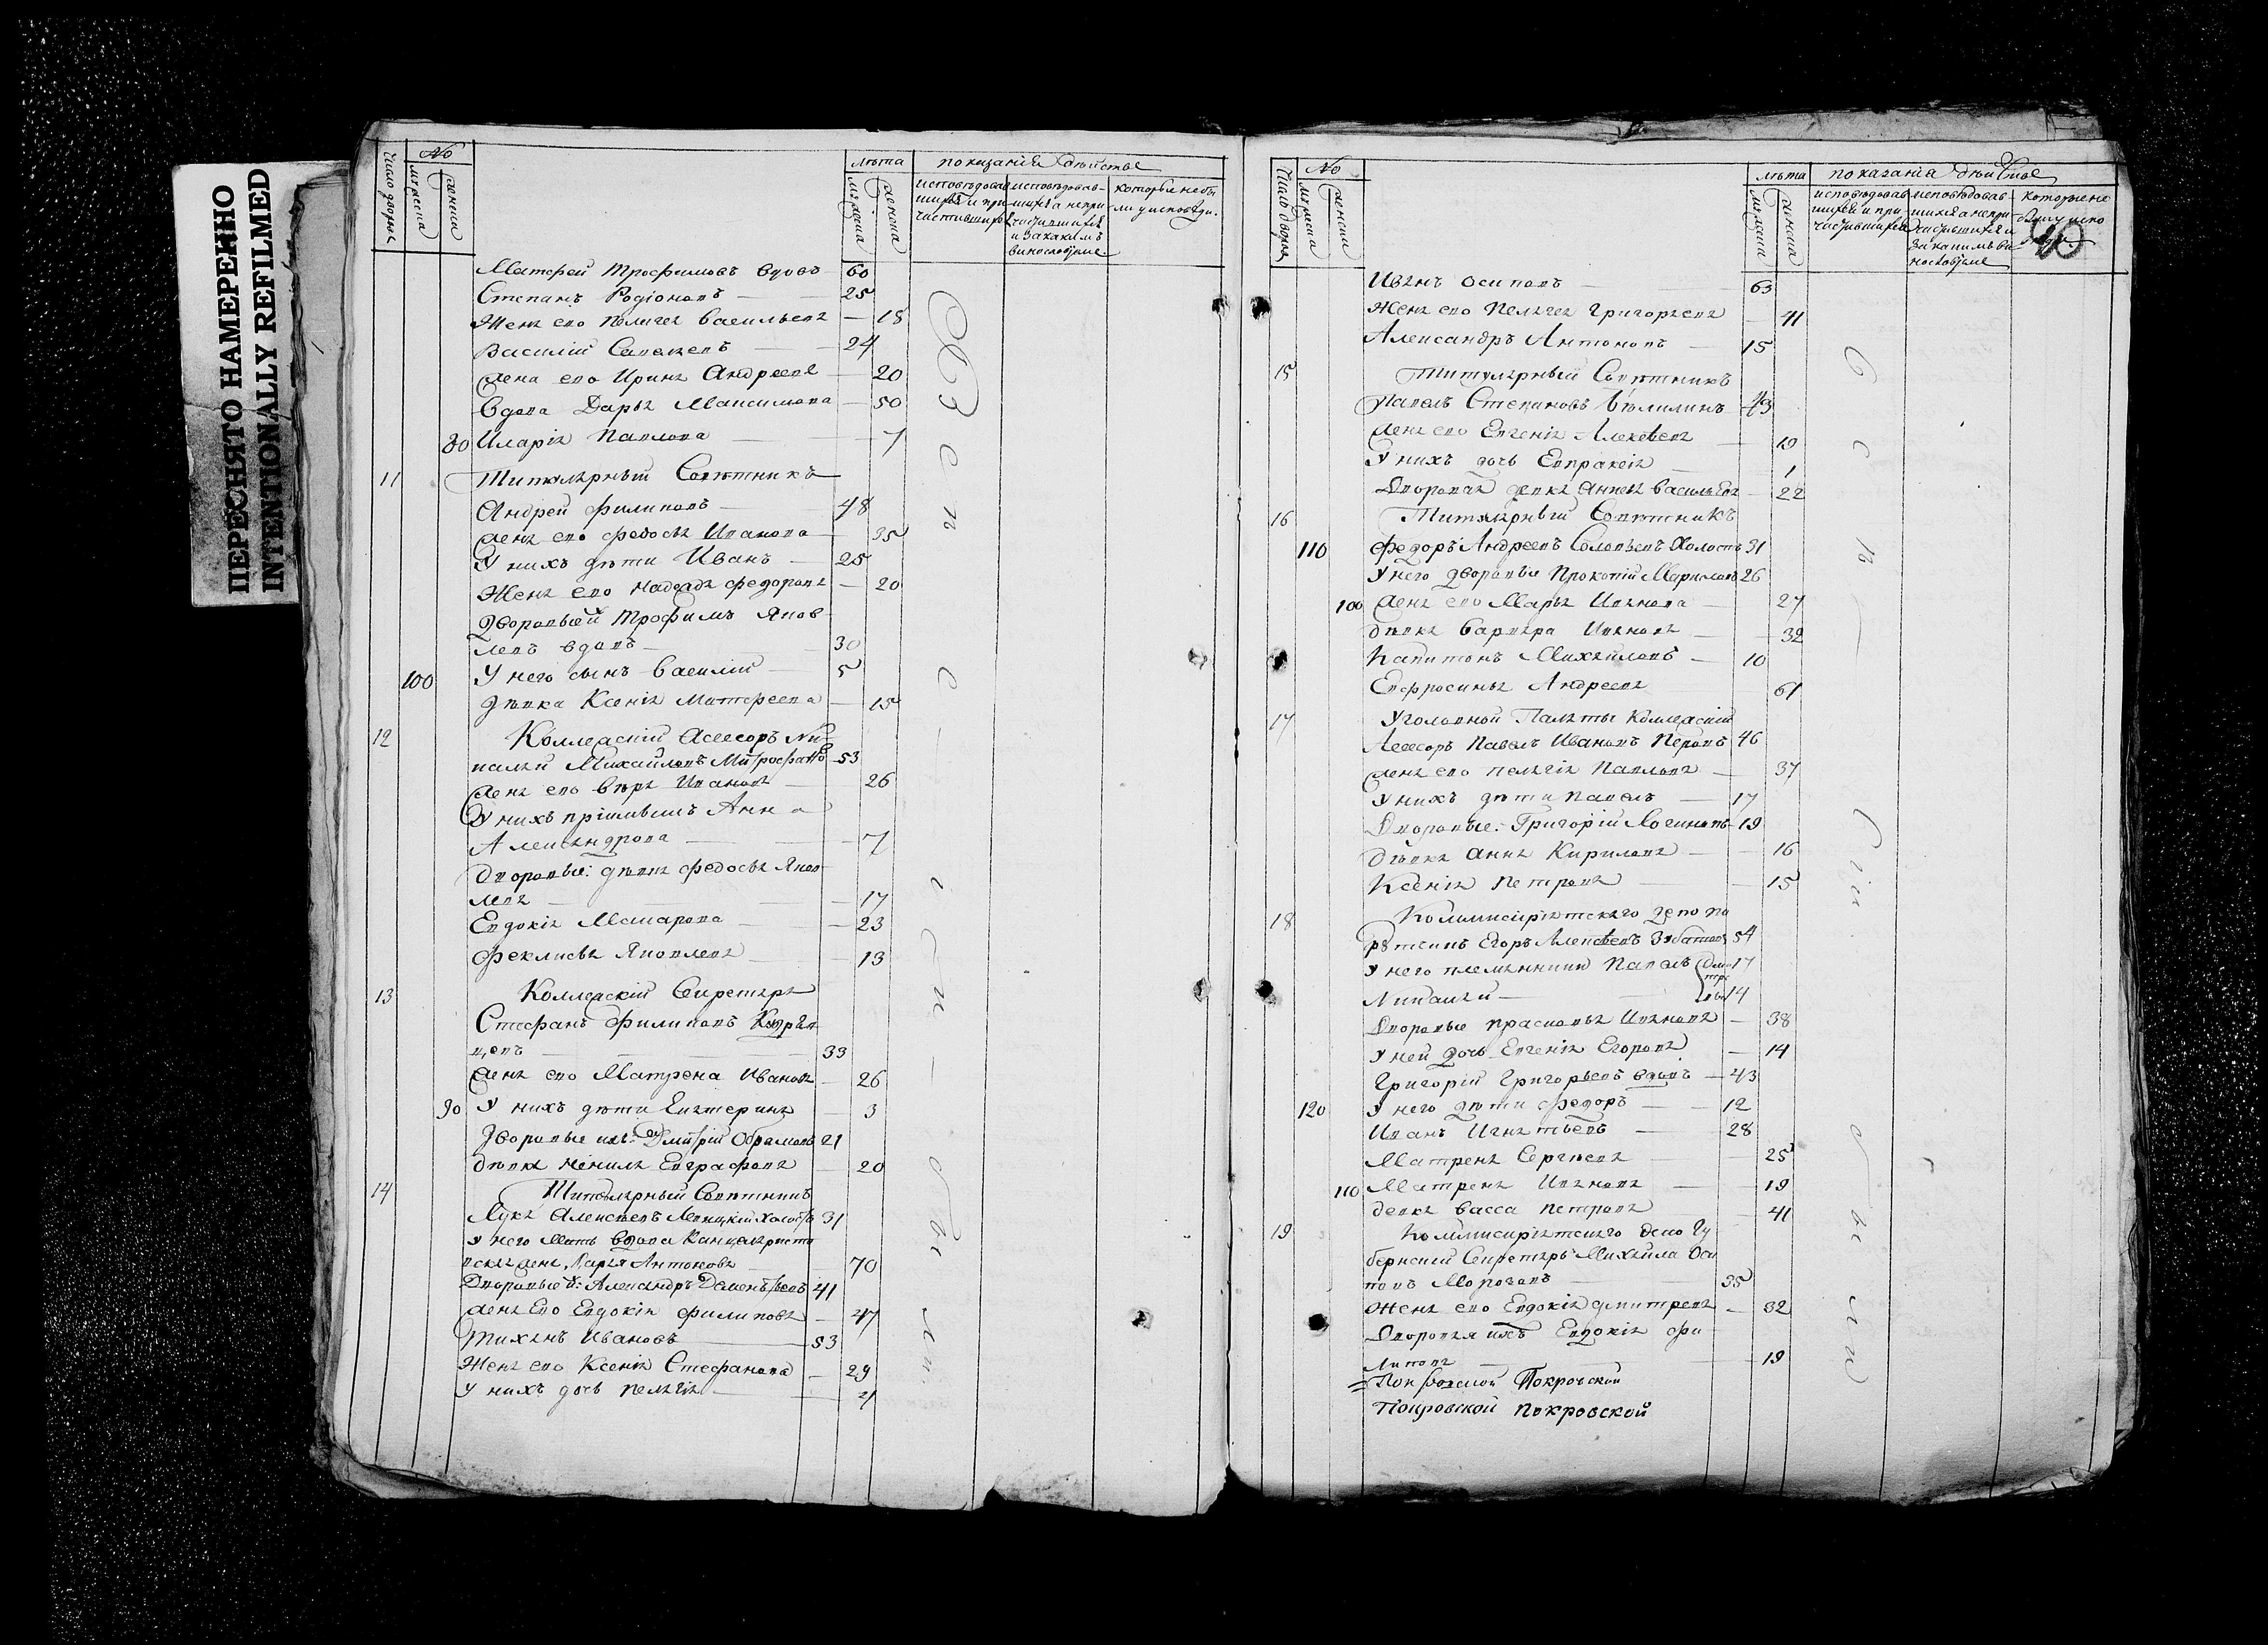 ПЕРЕСНЯТО НАМЕРЕННО
INTENTIONALLY REFILMED
Число дворовъ
No
мужеска
женска
лѣта
мужеска
женска
показанiе дѣйства
исповѣдовавшихся и причастившихся
исповѣдовавшихся а непричастившихся и за какимъ винословiемъ
которые не были у исповѣди.
Матфей Трофимовъ вдовъ 60
Степанъ Родiоновъ 25
Жена его Пелагея Васильева 18
Василiй Савельевъ 24
Жена его Ирина Андреева 20
Вдова Дарья Максимова 50
80 Иларiя Павлова 7
11 Титулярный Советникъ
Андрей Филиповъ 48
Жена его Федосья Иванова 35
У нихъ дѣти Иванъ 25
Жена его Надежда Федорова 20
Дворовый Трофимъ Яковлевъ вдовъ 30
100 У него сынъ Василiй 5
Дѣвка Ксенiя Матфеева 15
12 Коллежскiй Асесоръ Николай Михайловъ Митрофановъ 53
Жена его Вѣра Иванова 26
У нихъ прiимышъ Анна
Александрова 7
Дворовые: дѣвка Федосья Яковлева 17
Евдокiя Макарова 23
Феклисья Яковлева 13
13 Коллежскiй Секретарь
Стефанъ Филиповъ
цевъ 33
Жена его Матрена Иванова 26
90 У нихъ дѣти Екатерина 3
Дворовые ихъ: Дмитрiй Обрамовъ 21
Дѣвка Ненила Евграфова 20
14 Титулярный Советникъ
Лука Алексѣевъ Левицкiй холостъ 31
У него мать вдова Канцеляристовская жена, Марья Антонова 70
Дворовые: Александръ Дементьевъ 41
Жена Его Евдокiя Филипова 47
Тиханъ Ивановъ 53
Жена его Ксенiя Стефанова 29
У нихъ дочь Пелагiя 4
Число дворовъ
No
мужеска
женска
лѣта
мужеска
женска
показанiя дѣйствiе
исповѣдовавшихся и причастившихся
исповѣдовавшихся а непричастившихся и за какимъ винословiемъ
которые не были у исповѣди
40
Иванъ Осиповъ 63
Жена его Пелагея Григорьева 41
Александръ Антоновъ 15
15 Титулярный Советникъ
Павелъ Степановъ Бѣлилинъ 43
Жена его Евгенiя Алексѣева 19
У нихъ дочь Евпраксiя 1
Дворовая девка Аннея Васильева 22
16 Титулярный Советникъ
110 Федоръ Андреевъ Соловьевъ Холостъ 31
У него дворовые Прокопiй Мариновъ 26
100 Жена его Марья Иванова 27
Дѣвка Варвара Иванова 32
Капитонъ Михайловъ 10
Евфросинья Андреева 61
17 Уголовной Палаты Коллежскiй
Асесоръ Павелъ Ивановъ Перовъ 46
Жена его Пелагiя Павлова 37
У нихъ дѣти Павелъ 17
Дворовые: Григорiй Логиновъ 19
Дѣвка Анна Кирилова 16
Ксенiя Петрова 15
18 Коммисарiатскаго депо по
ручикъ Егоръ Алексѣевъ Зубатовъ 54
У него племянники Павелъ 17
Николай 14
Дворовые Прасковья Иванова 38
У ней дочь Евгенiя Егорова 14
Григорiй Григорьевъ вдовъ 43
120 У него дѣти Федоръ 12
Иванъ Игнатьевъ 28
Матрена Сергѣева 25
110 Матрена Иванова 19
Девка Васса Петрова 41
19 Коммисарiатскаго депо Губернскiй Секретарь Михаила Осиповъ Морозовъ 35
Жена его Евдокiя Дмитрева 32
Дворовая ихъ Евдокiя Филипова 19
Покровской
Покровской Покровской